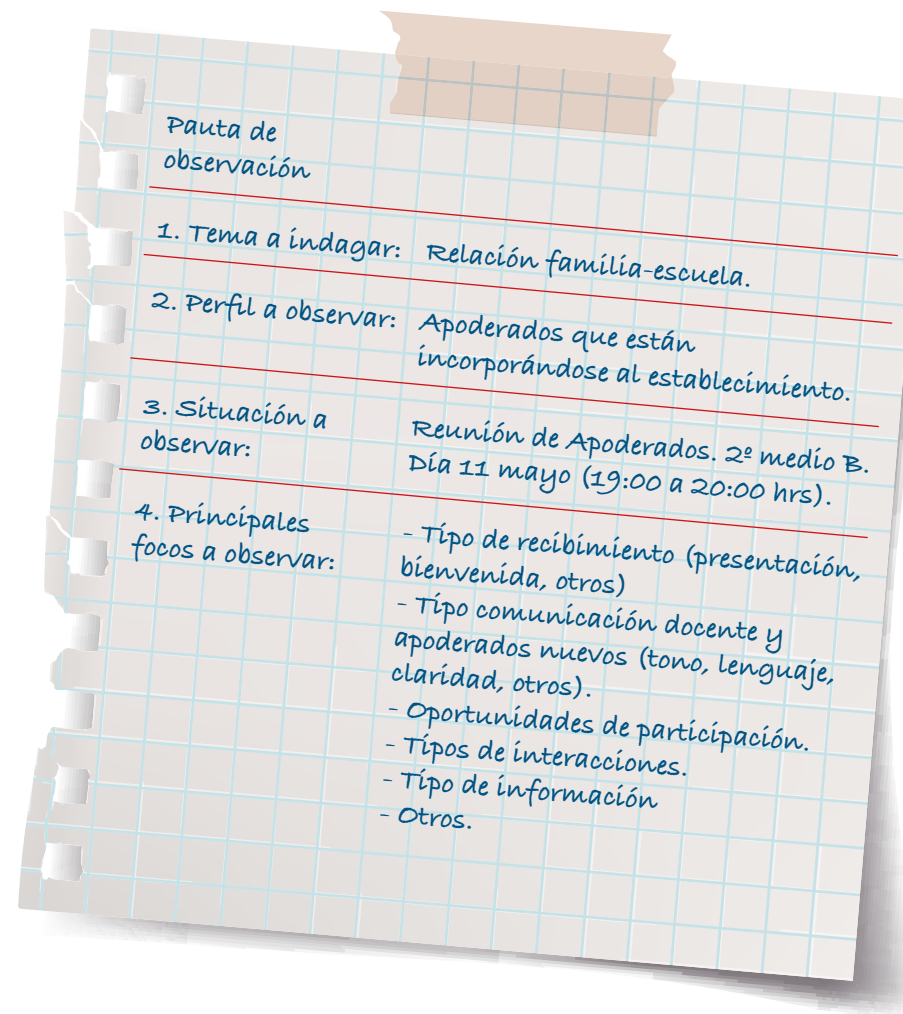 Pauta de
observación
1. Tema a indagar: Relación familia-escuela.
2. Perfil a observar: Apoderados que están
incorporándose al establecimiento.
3. Situación a
observar:
Reunión de Apoderados. 2º medio B.
Día 11 mayo (19:00 a 20:00 hrs).
4. Principales
focos a observar:
- Tipo de recibimiento (presentación,
bienvenida, otros)
- Tipo comunicación docente y
apoderados nuevos (tono, lenguaje,
claridad, otros).
- Oportunidades de participación.
- Tipos de interacciones.
- Tipo de información
- Otros.